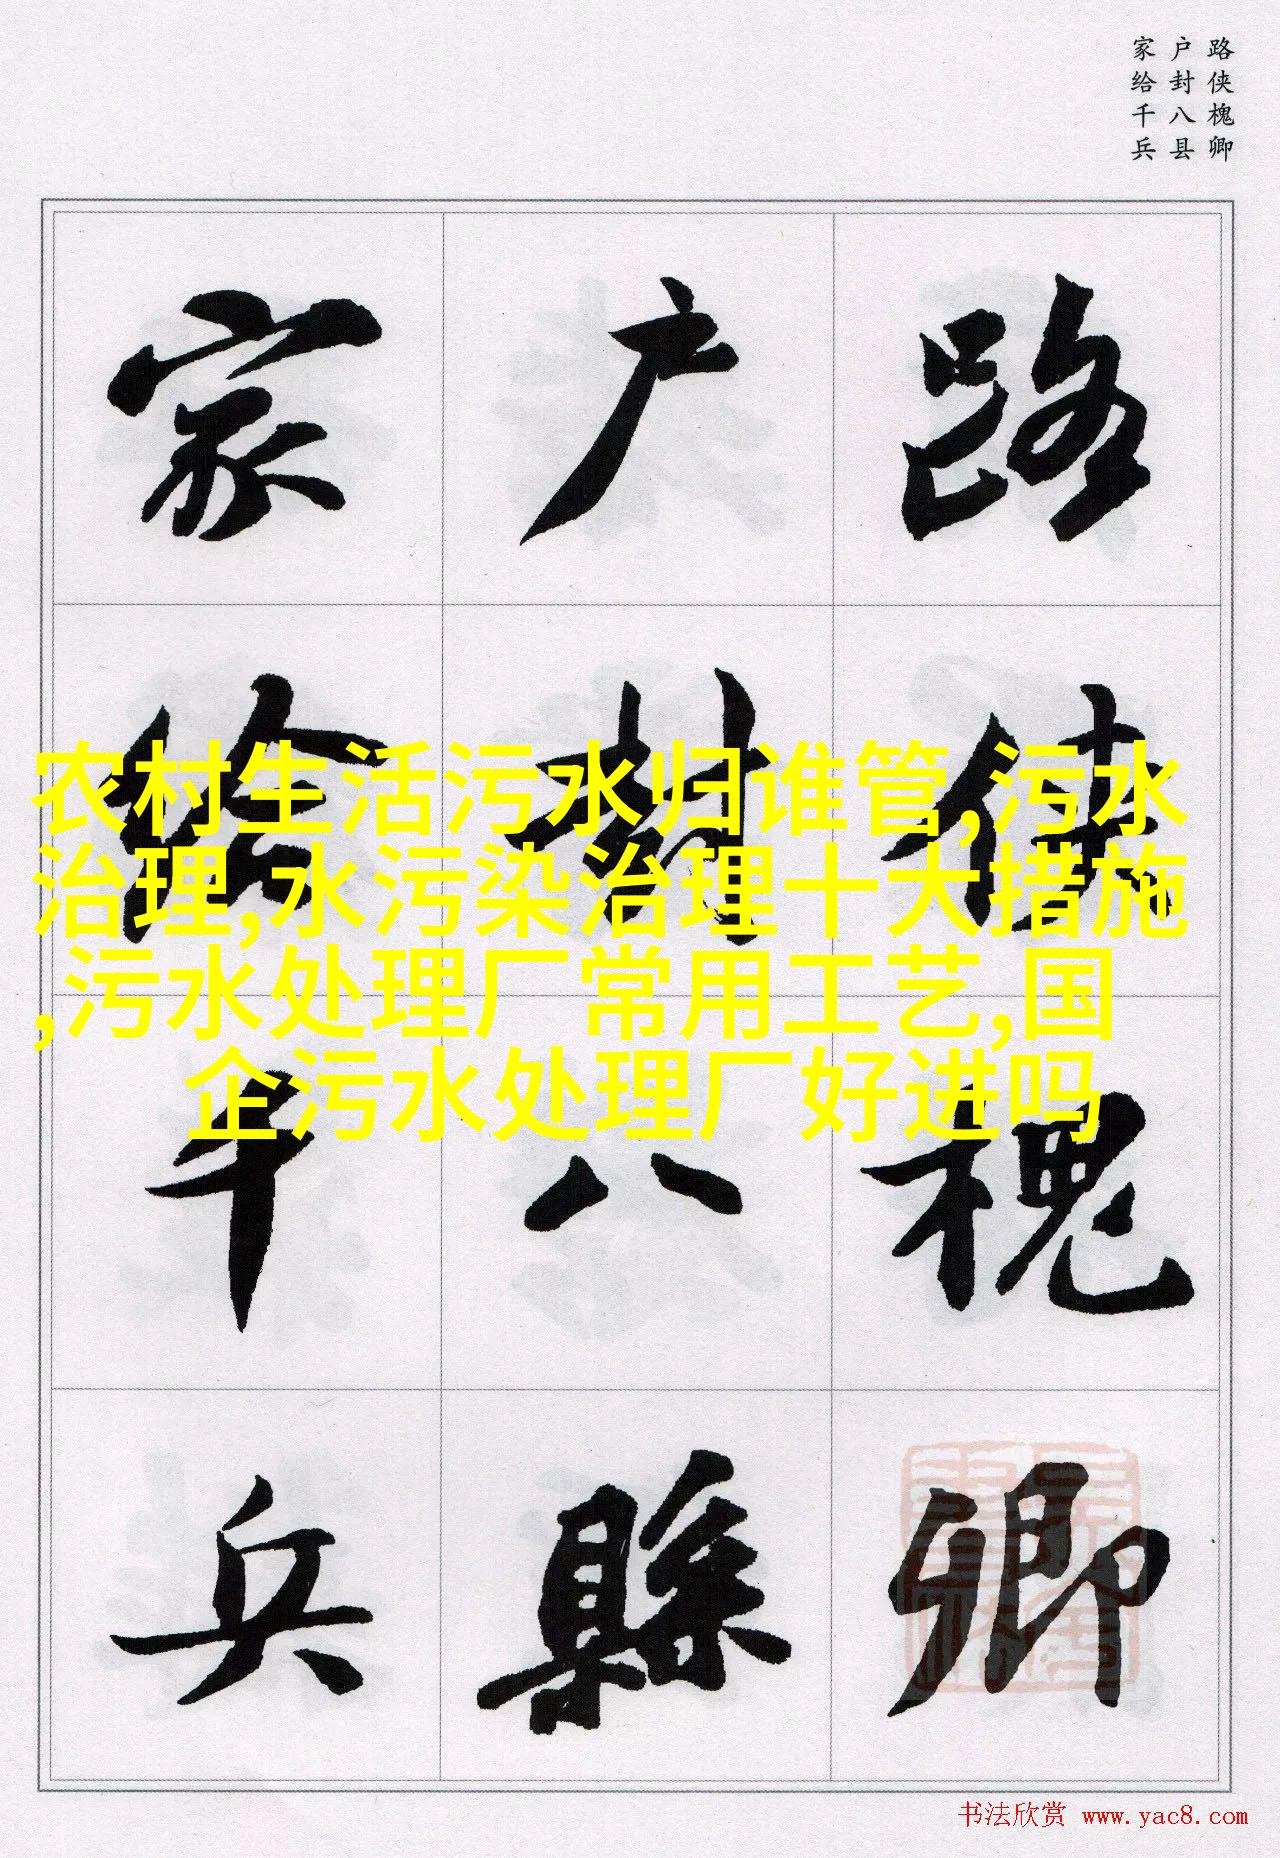 路侠槐卿
户封八县
家给千兵
路侠槐卿
户封八縣
家给千兵
农村生活污水归谁管,污水
治理,水污染治理十大措施
,污水处理厂常用工艺,国
企污水处理厂好进吗
书法欣赏 www.yac8.com